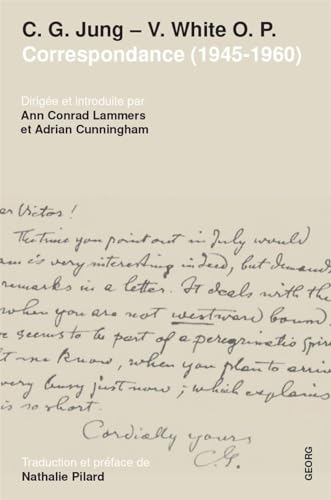 C. G. Jung – V. White O. P.
Correspondance (1945-1960)
Dirigée et introduite par
Ann Conrad Lammers
et Adrian Cunningham
er Victor!
The time you point out in July would
is very interesting indeed, but demands
remarks in a letter. It deals with the
when you are not westward bound.
e seems to be part of a peregrinatio
t me know, when you plan to arrive
very busy just now; which explains
is so short.
Cordially yours
C.G.
Traduction et préface de
Nathalie Pilard
GEORG